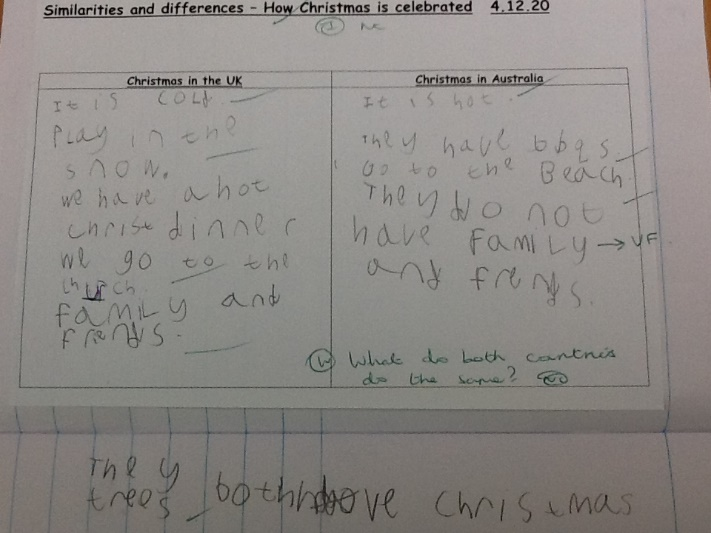 Similarities and differences – How Christmas is celebrated 4.12.20
Christmas in the UK
It is cold
Play in the
snow.
we have a hot
christ dinner
we go to the
church.
family and
frends.
Christmas in Australia
It is hot.
They have bbqs
Go to the Beach
They do not
have family → VF
and frends.
What do both countries
do the same?
They
trees both have christmas